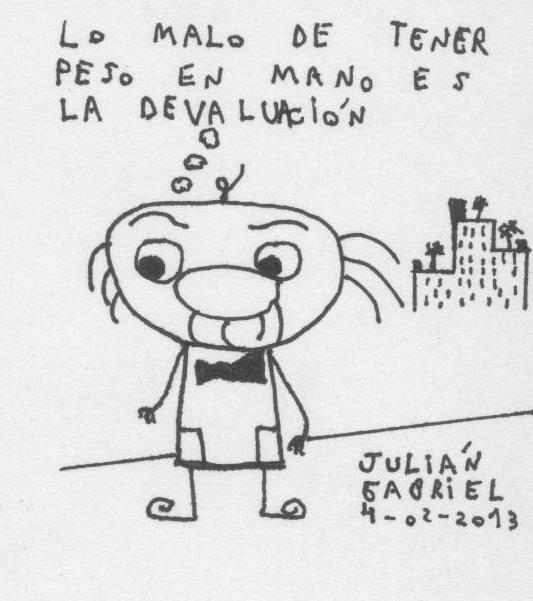 LO MALO DE TENER
PESO EN MANO ES
LA DEVALUACIÓN
JULIÁN
GABRIEL
4-02-2013